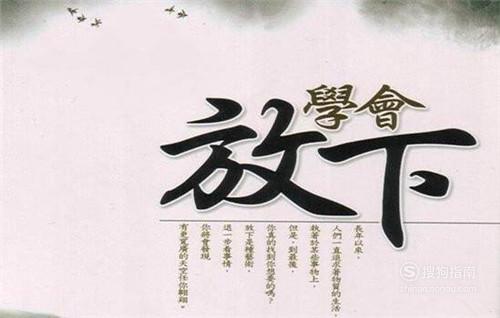 學會
放下
長年以來，
人們一直追求著物質的生活，
執著於某些事物上，
但是，到最後，
你真的找到你想要的嗎？
放下是種藝術，
退一步看事情，
你將會發現
有更寬廣的天空任你翱翔。
搜狗指南
zhinan.sogou.com